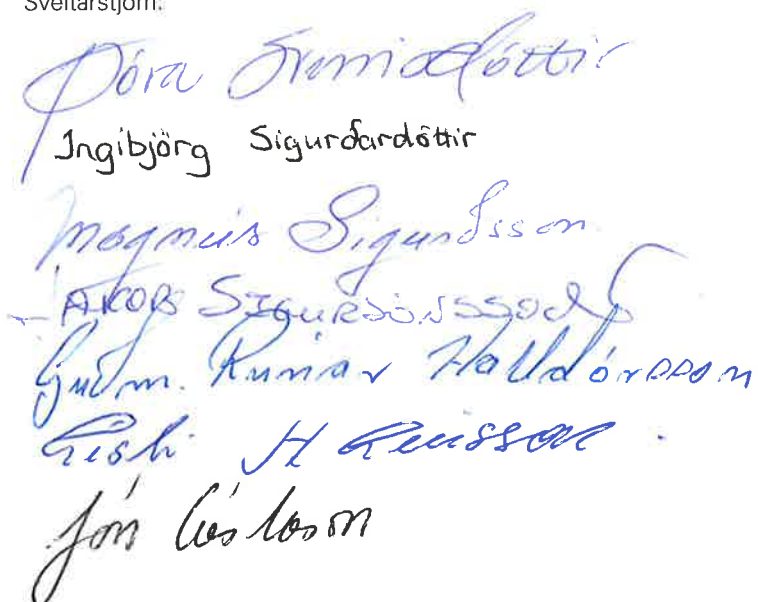 Sveitarstjórn:
Þóra Sverrisdóttir
Ingibjörg Sigurðardóttir
Magnús Sigurðsson
Jakob Sigurjónsson
Guðm. Rúnar Halldórsson
Jón Gíslason